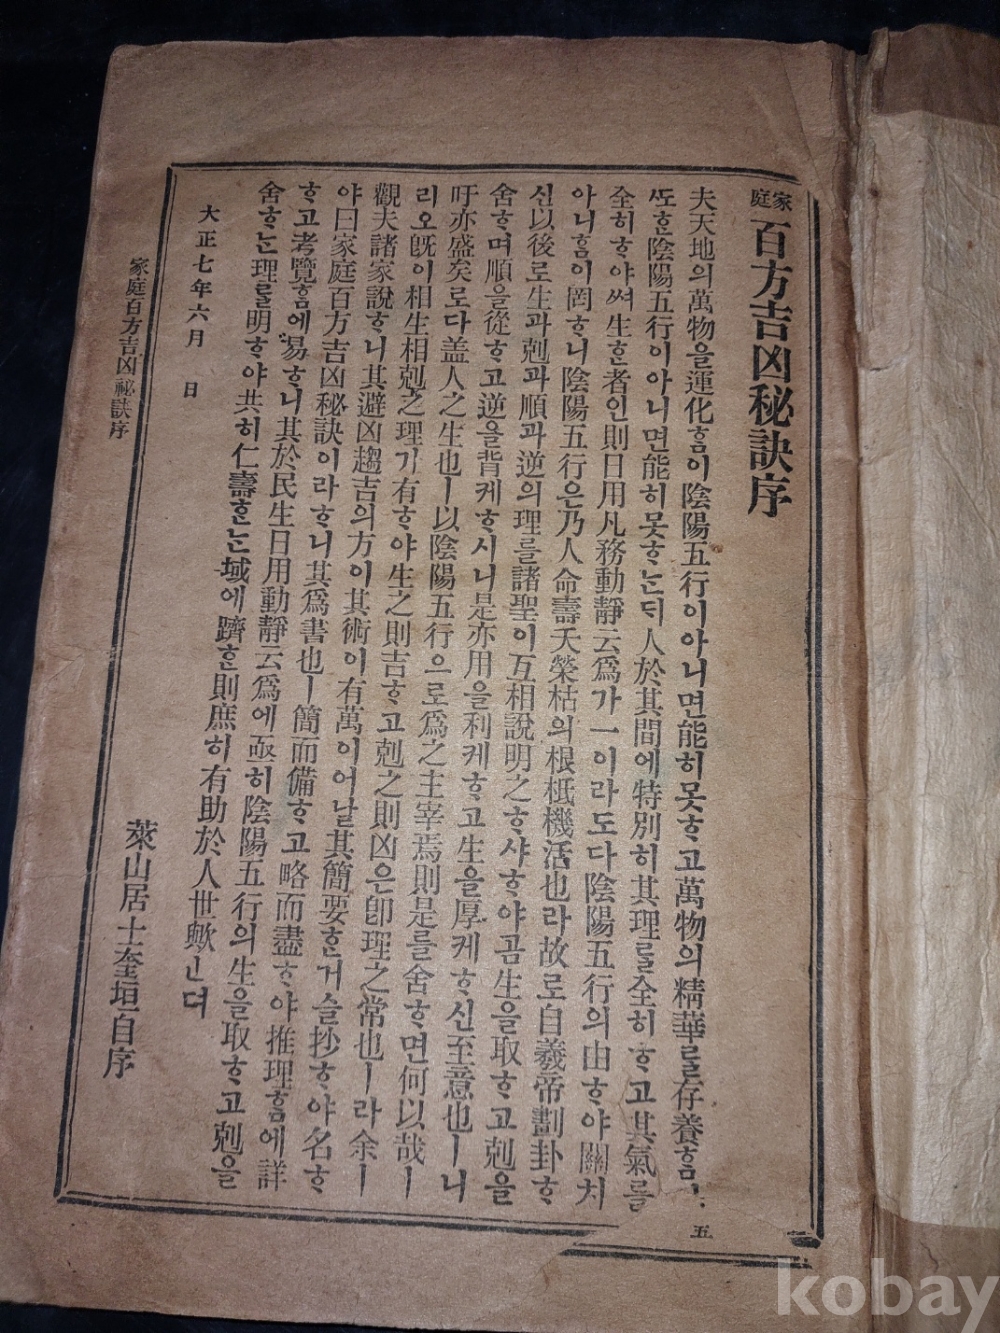 家庭 百方吉凶秘訣序
夫天地의萬物을運化홈이陰陽五行이아니면能히못ᄒᆞ고萬物의精華ᄅᆞᆯ存養홈
ᄯᅩᄒᆞᆫ陰陽五行이아니면能히못ᄒᆞᄂᆞᆫᄃᆡ人於其間에特別히其理ᄅᆞᆯ全히ᄒᆞ고其氣를
全히ᄒᆞ야써生ᄒᆞᆫ者인則日用凡務動靜云爲가一이라도다陰陽五行의由ᄒᆞ야關치
아니홈이罔ᄒᆞ니陰陽五行은乃人命壽夭榮枯의根柢機活也라故로自羲帝劃卦ᄒᆞ
신以後로生과剋과順과逆의理를諸聖이互相說明之ᄒᆞ샤ᄒᆞ야곰生을取ᄒᆞ고剋을
舍ᄒᆞ며順을從ᄒᆞ고逆을背케ᄒᆞ시니是亦用을利케ᄒᆞ고生을厚케ᄒᆞ신至意也ㅣ니
吁亦盛矣로다盖人之生也ㅣ以陰陽五行으로爲之主宰焉則是를舍ᄒᆞ면何以哉ㅣ
리오旣이相生相剋之理가有ᄒᆞ야生之則吉ᄒᆞ고剋之則凶은卽理之常也ㅣ라余ㅣ
觀夫諸家說ᄒᆞ니其避凶趨吉의方이其術이有萬이어날其簡要ᄒᆞᆫ거슬抄ᄒᆞ야名ᄒᆞ
야曰家庭百方吉凶秘訣이라ᄒᆞ니其爲書也ㅣ簡而備ᄒᆞ고略而盡ᄒᆞ야推理홈에詳
ᄒᆞ고考覽홈에易ᄒᆞ니其於民生日用動靜云爲에亟히陰陽五行의生을取ᄒᆞ고剋을
舍ᄒᆞᄂᆞᆫ理ᄅᆞᆯ明ᄒᆞ야共히仁壽ᄒᆞᄂᆞᆫ域에躋ᄒᆞᆫ則庶히有助於人世歟ᆫ뎌
大正七年六月 日
萊山居士奎垣自序
家庭百方吉凶秘訣序
五
kobay